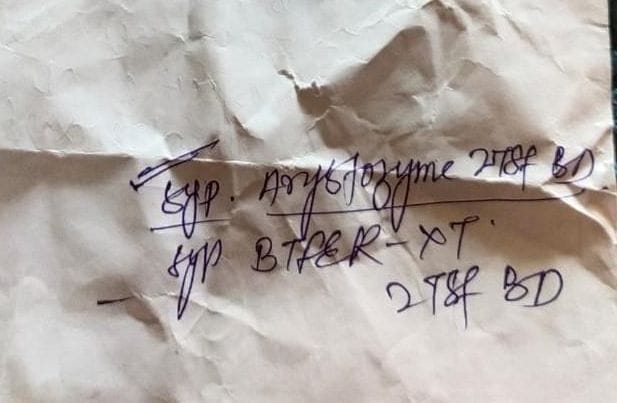 Syp. Arystozyme 2TSf BD
Syp BTFER-XT
2TSf BD